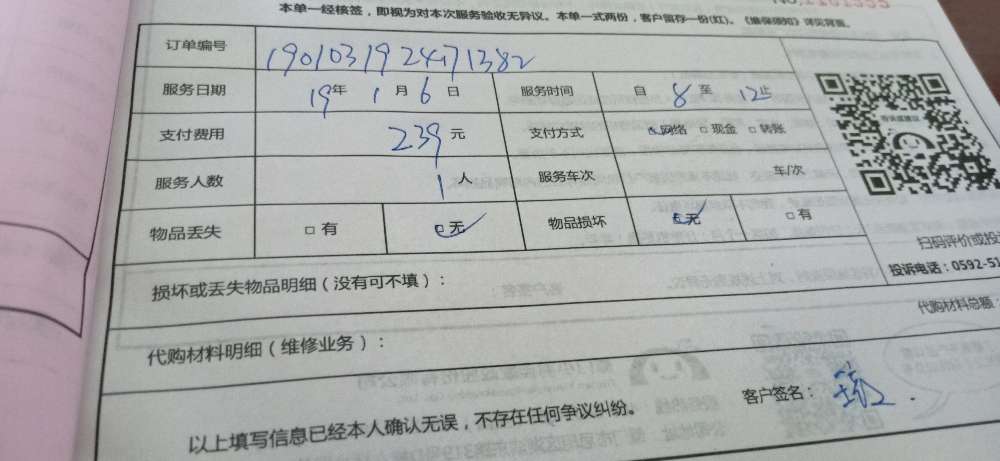 本单一经核签，即视为对本次服务验收无异议。本单一式两份，客户留存一份(红)。《维保须知》详见背面。
订单编号 1901031924471382
服务日期 19年 1月 6日 服务时间 自 8 至 12止
支付费用 239元 支付方式 网络 □现金 □转账
服务人数 1人 服务车次 车/次
物品丢失 □有 无 物品损坏 无 □有
扫码评价或投
投诉电话：0592-51
损坏或丢失物品明细（没有可不填）：
代购材料总额：
代购材料明细（维修业务）：
客户签名：
以上填写信息已经本人确认无误，不存在任何争议纠纷。